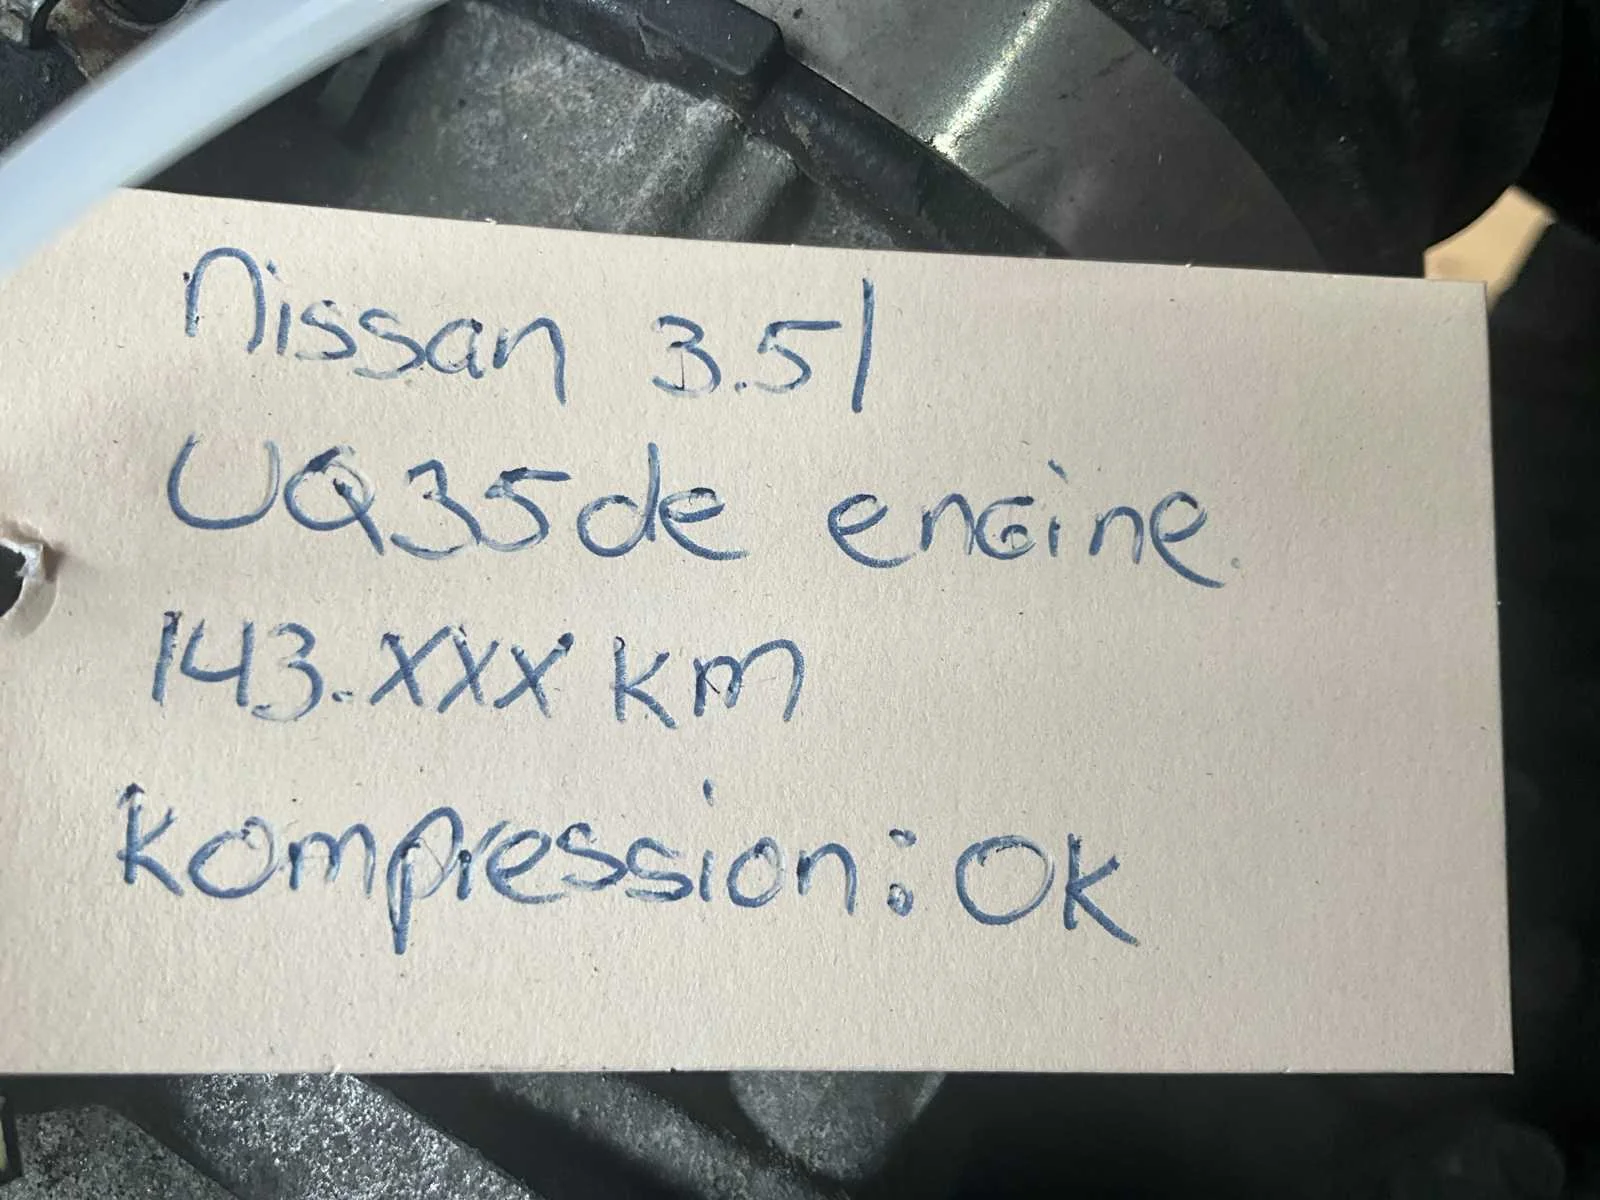 Nissan 3.5l
UQ35de engine.
143.xxx km
Kompression: OK